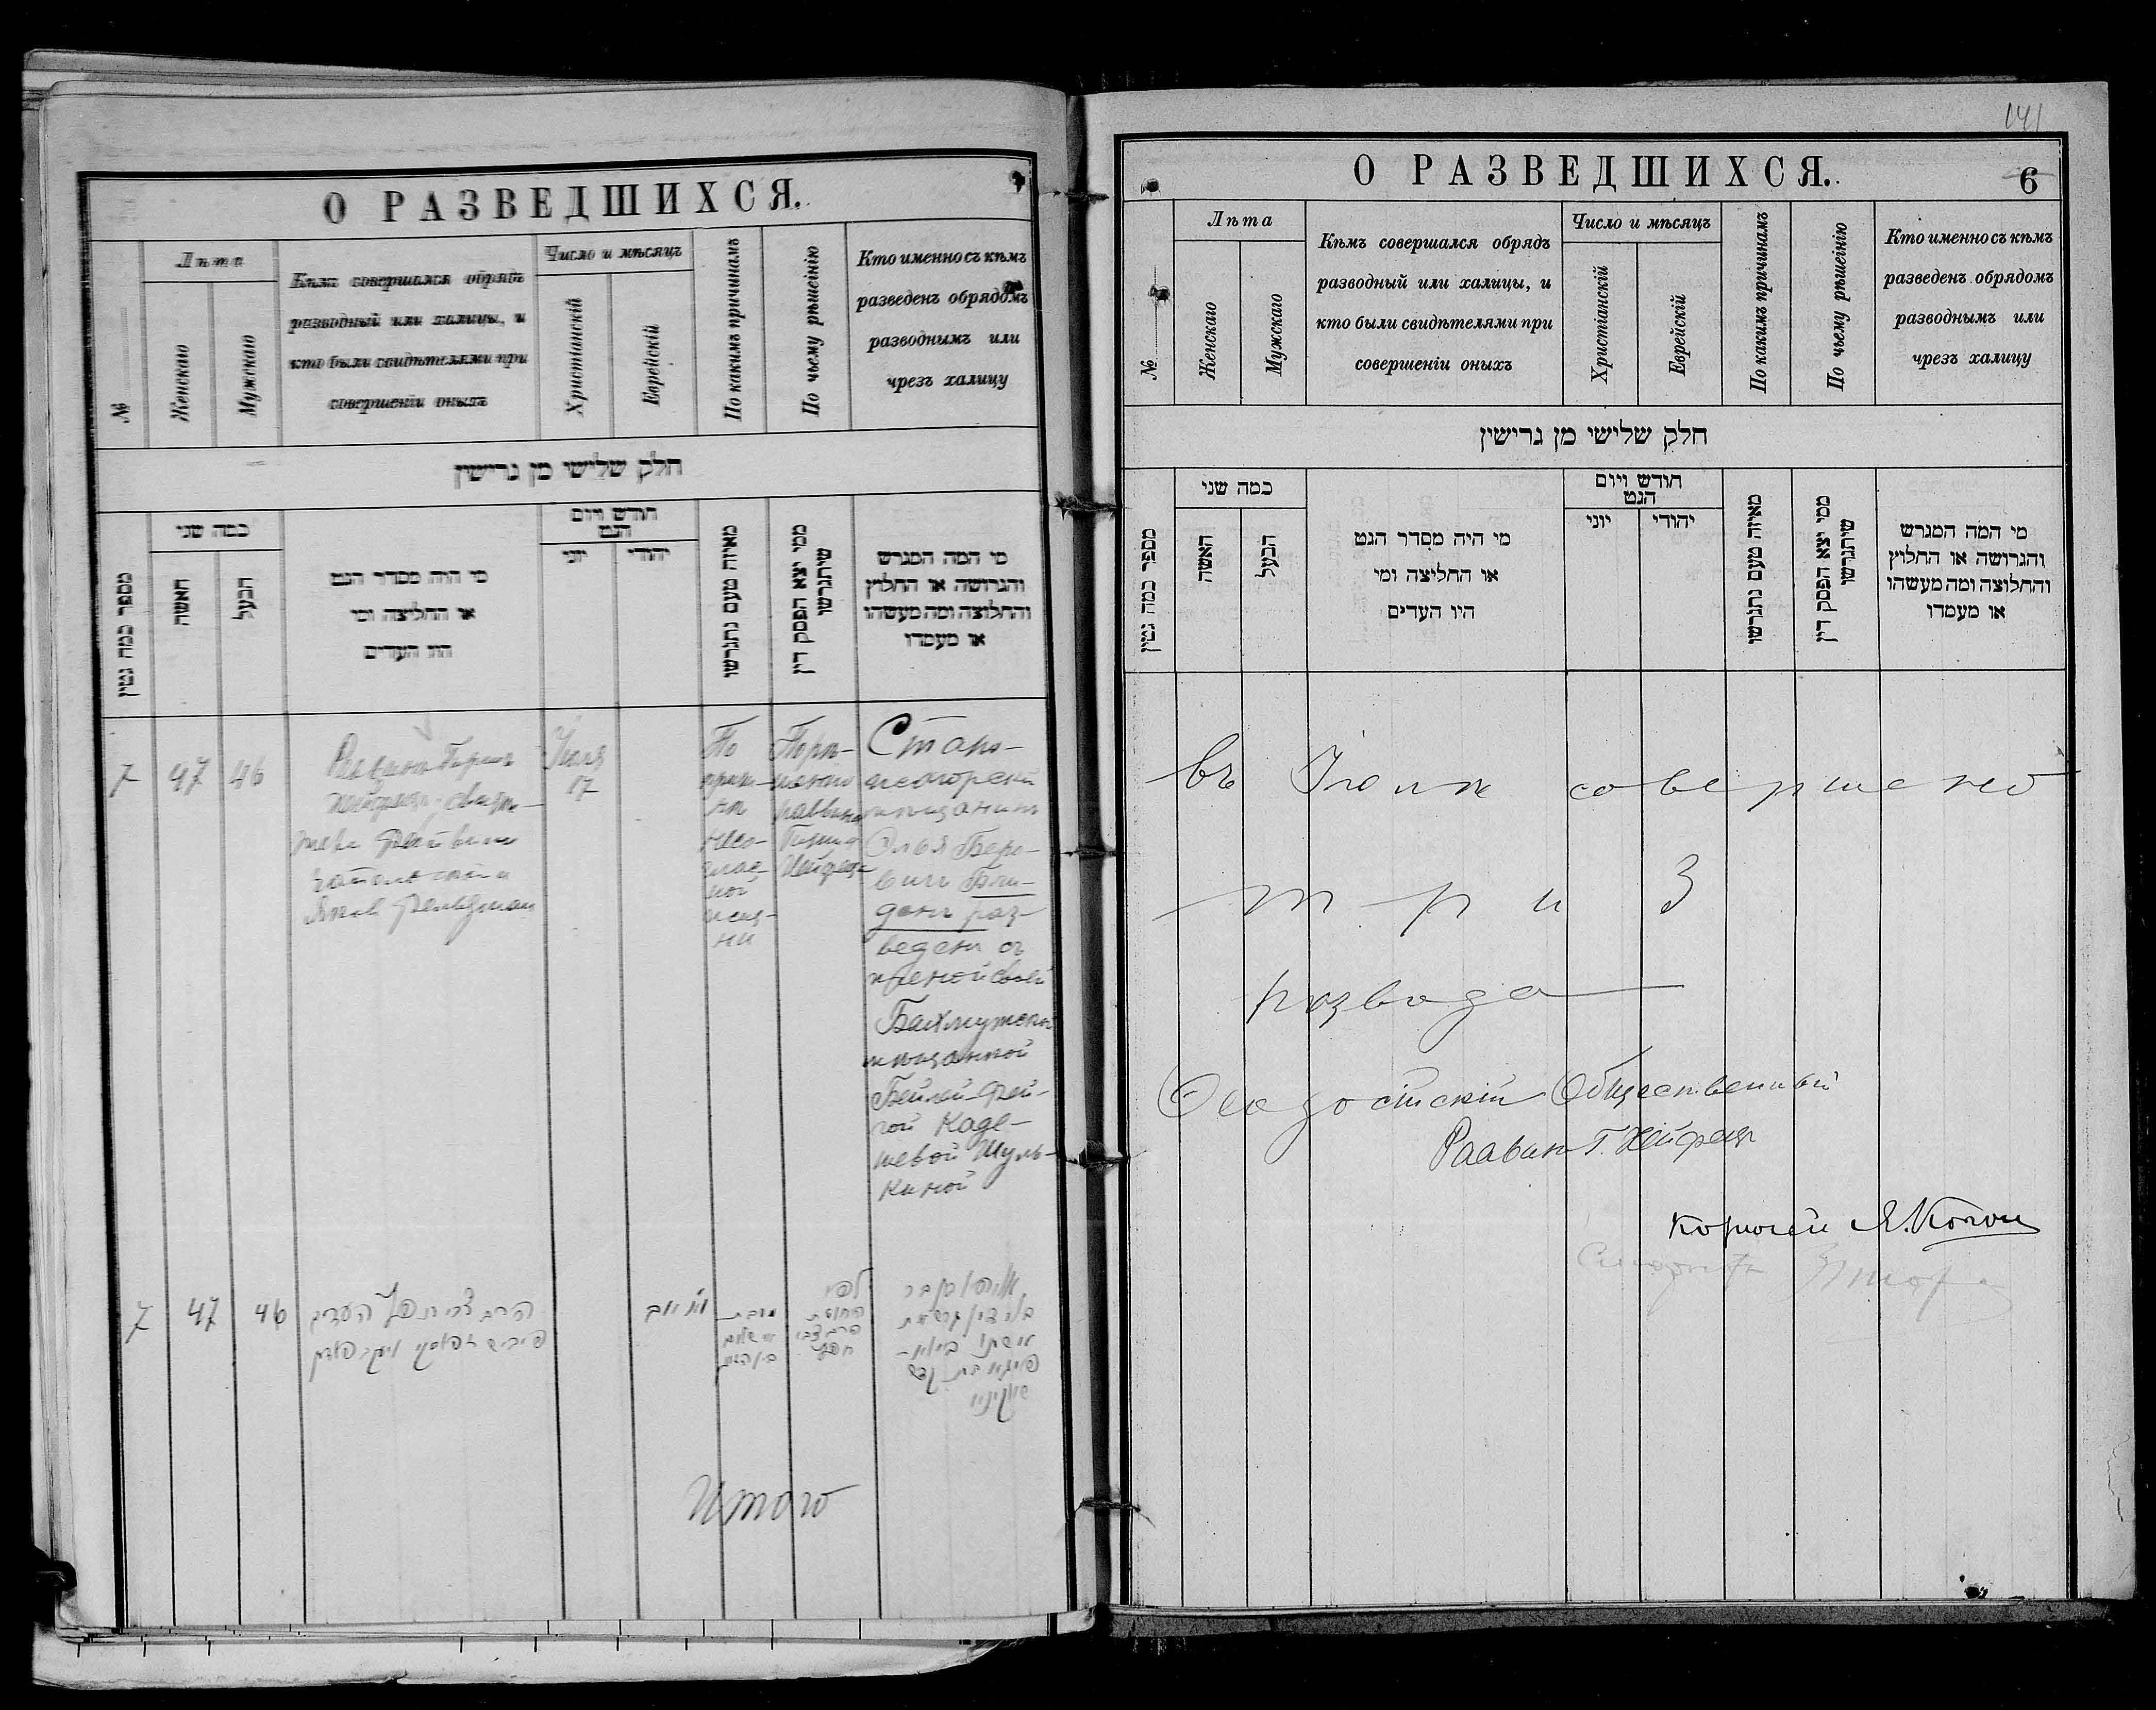 О РАЗВЕДШИХСЯ.
№
Лѣта
Женскаго
Мужскаго
Кѣмъ совершался обрядъ
разводный или халицы, и
кто были свидѣтелями при
совершеніи оныхъ
Число и мѣсяцъ
Христіанскій
Еврейскій
По какимъ причинамъ
По чьему рѣшенію
Кто именно съ кѣмъ
разведенъ обрядомъ
разводнымъ или
чрезъ халицу
חלק שלישי מן גרישין
מספר כמה גטין
כמה שני
האשה
הבעל
מי היה מסדר הגט
או החליצה ומי
היו העדים
חודש ויום
הגט
יוני
יהודי
מאיזה טעם נתגרשו
ממי יצא הפסק דין
שיתגרשו
מי המה המגרש
והגרושה או החלוץ
והחלוצה ומה מעשהו
או מעמדו
7
47
46
Раввинъ Гиршъ
Хейфецъ, свидѣ-
тели
Яковъ Фельдман
Іюля
17
По
причи-
нѣ
несо-
глас-
ной
жиз-
ни
По рѣ-
шенію
раввина
Гирша
Хейфеца
Старо-
мѣщанинъ
Бери-
Бли-
денъ раз-
веденъ съ
женой своей
Бахмутской
мѣщанкой
Бейлей-Фей-
гой Каде-
шевой Шуль-
киной
7
47
46
הרב צבי חפץ העדים
לפי
אשתו ביילא-
פייגא בת קדש
שולקינא
Итого
141
О РАЗВЕДШИХСЯ.
6
№
Лѣта
Женскаго
Мужскаго
Кѣмъ совершался обрядъ
разводный или халицы, и
кто были свидѣтелями при
совершеніи оныхъ
Число и мѣсяцъ
Христіанскій
Еврейскій
По какимъ причинамъ
По чьему рѣшенію
Кто именно съ кѣмъ
разведенъ обрядомъ
разводнымъ или
чрезъ халицу
חלק שלישי מן גרישין
מספר כמה גטין
כמה שני
האשה
הבעל
מי היה מסדר הגט
או החליצה ומי
היו העדים
חודש ויום
הגט
יוני
יהודי
מאיזה טעם נתגרשו
ממי יצא הפסק דין
שיתגרשו
מי המה המגרש
והגרושה או החלוץ
והחלוצה ומה מעשהו
או מעמדו
въ Іюлѣ совершено
три 3
развода
Ѳеодосійскій Общественный
Раввин Г. Хейфецъ
Я. Коган